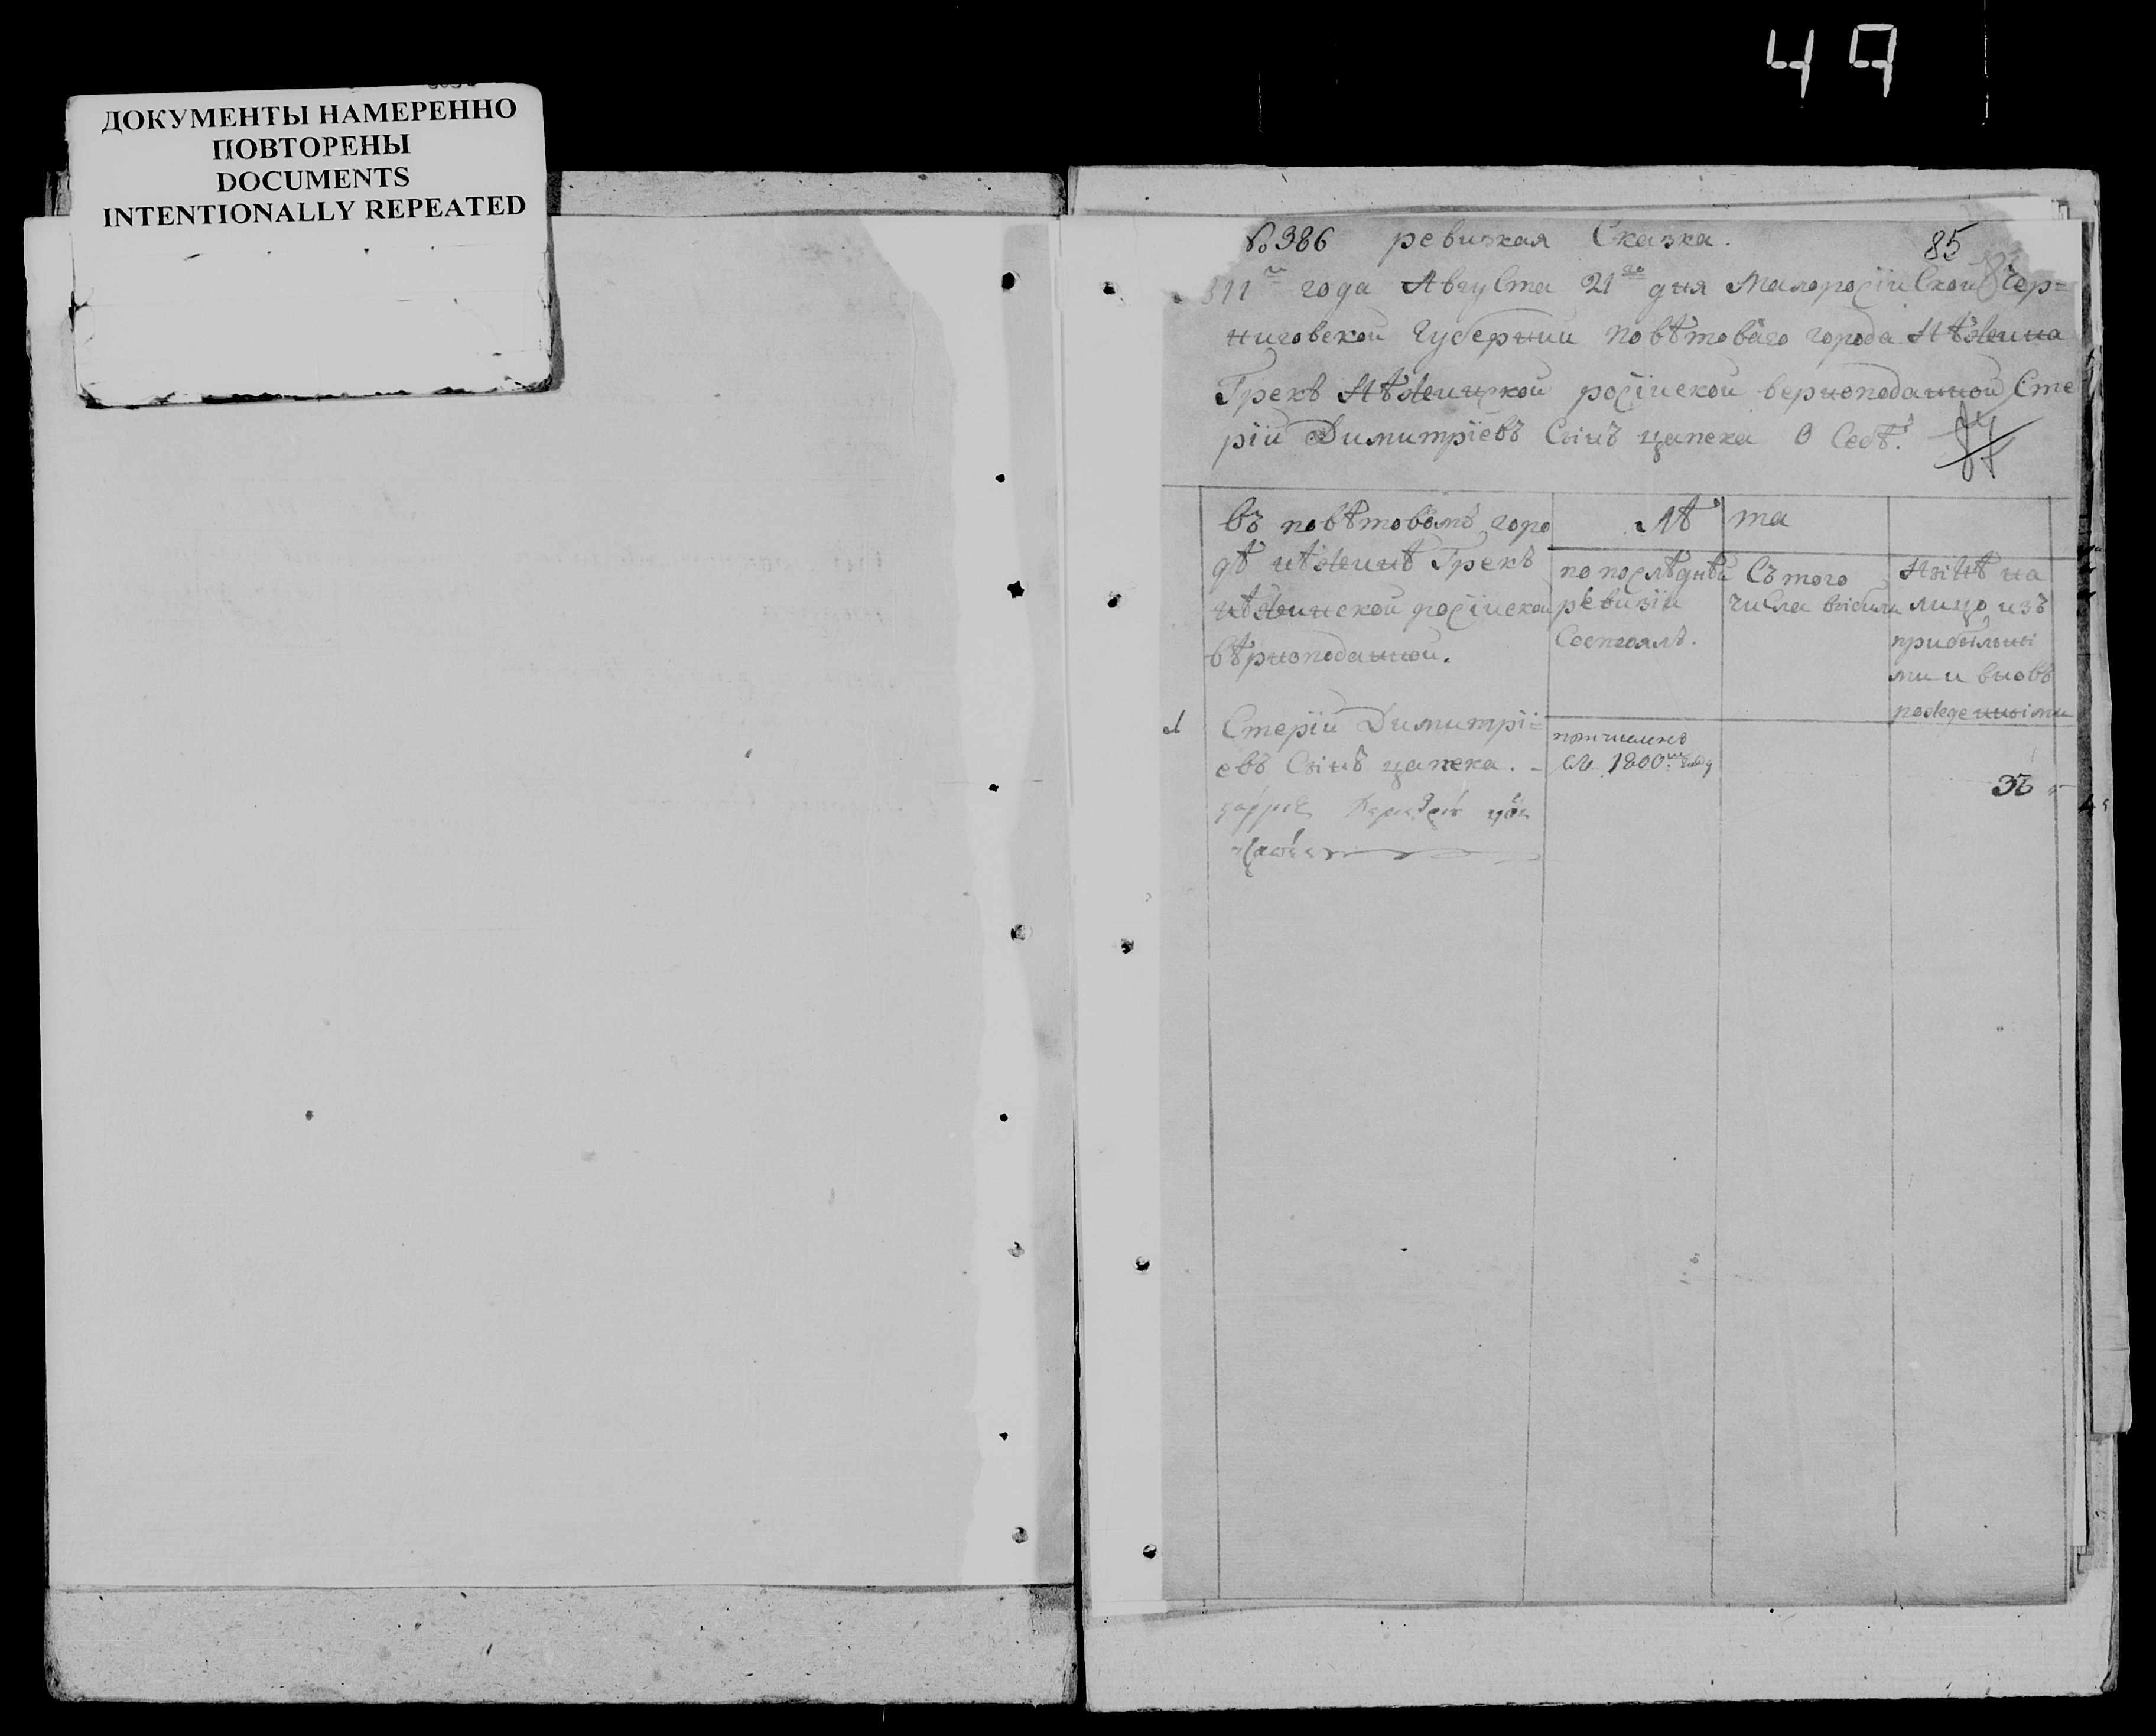 47
ДОКУМЕНТЫ НАМЕРЕННО
ПОВТОРЕНЫ
DOCUMENTS
INTENTIONALLY REPEATED
№386 ревизкая Сказка. 85
811 года Августа 21го дня Малоросїйской Чер=
ниговской Губернии повѣтоваго города Нѣжина
Грекъ Нѣжинской росїйской верноподанной Сте
рїй Димитрїевъ Сынъ цапека О Себѣ.
Въ повѣтовомъ горо
дѣ нѣжинѣ Грекъ
нѣжинской росїйской
вѣрноподанной.
Лѣ та
по послѣдней
ревизїи
Состоялъ.
Съ того
числа выбыли
Нынѣ на
лицо изъ
прибылыи
ми и вновъ
рожденныіми
1 Стерїй Димитрї=
евъ Сынъ цапека.
въ 1800м году
36